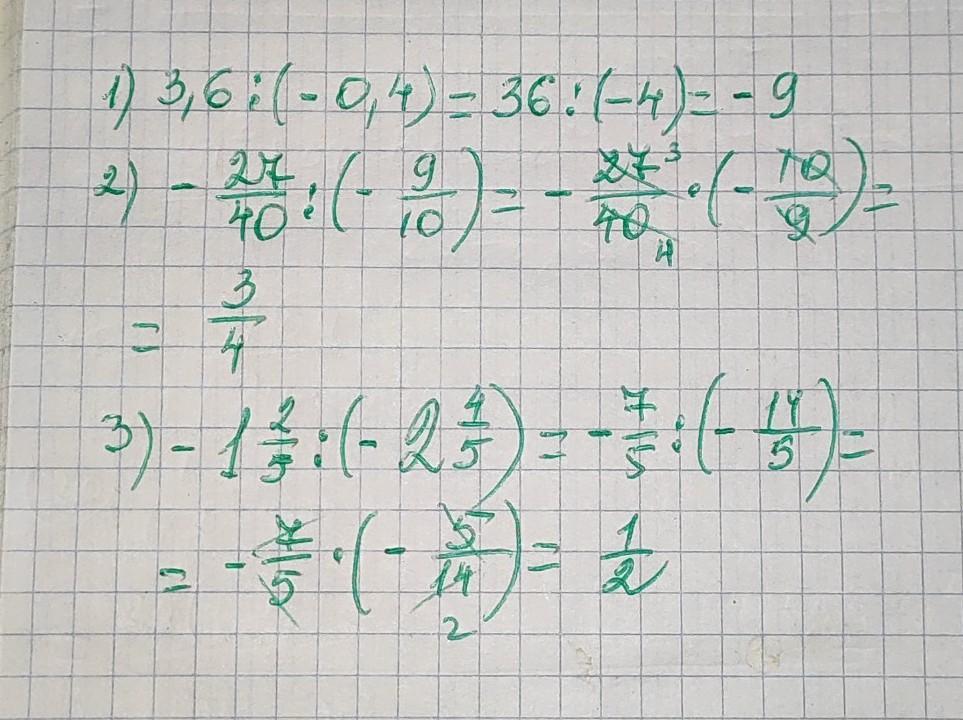 1) 3,6 : (- 0,4) = 36 : (-4) = - 9
2) - 27/40 : (- 9/10) = - 27 3/40 4 · (- 10/9) =
= 3/4
3) - 1 2/5 : (- 2 4/5) = - 7/5 : (- 14/5) =
= - 7/5 · (- 5/14 2) = 1/2